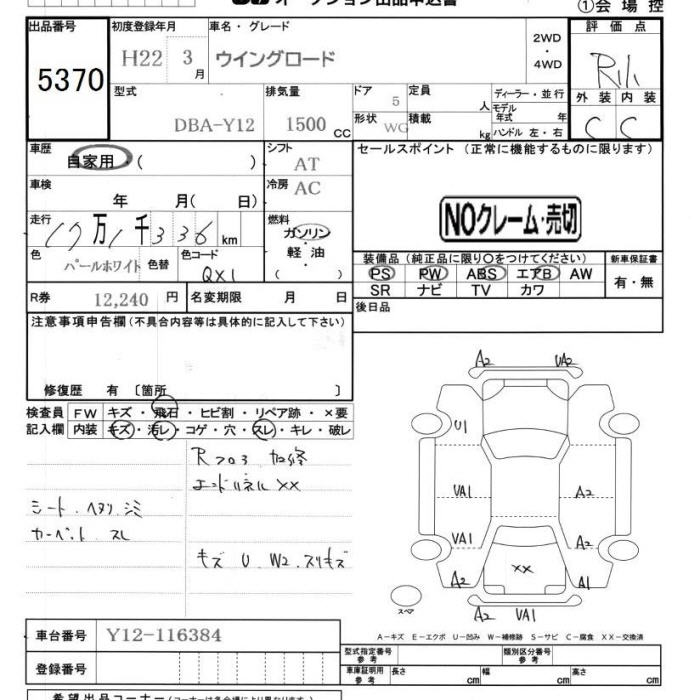 オークション出品申込書
①会場控
出品番号 初度登録年月 車名・グレード 評価点
5370 H22 3月 ウイングロード 2WD・4WD
外装 内装
C C
型式 排気量 ドア 定員 ディーラー・並行
DBA-Y12 1500 CC 5 人 モデル年式 年
形状 WG 積載 kg ハンドル 左・右
車歴 シフト セールスポイント (正常に機能するものに限ります)
自家用 ( ) AT
車検 冷房 AC
年 月( 日)
NOクレーム・売切
走行 燃料
17万1千336km ガソリン
軽・油
( )
色 色替 色コード
パールホワイト QX1
装備品(純正品に限り○をつけてください) 新車保証書
PS PW ABS エアB AW 有・無
SR ナビ TV カワ
R券 12,240 円 名変期限 月 日
後日品
注意事項申告欄(不具合内容等は具体的に記入して下さい)
修復歴 有 〔箇所 〕
検査員 FW キズ・飛石・ヒビ割・リペア跡・×要
記入欄 内装 キズ・汚レ・コゲ・穴・スレ・キレ・破レ
Rフロア 加修
エンドパネル XX
シート.ヘタリ.シミ
カーペット スレ
キズ U W2 スリキズ
A2 UA2
U1
UA1 A2
UA1 A2
A2 XX A1
スペア
A2 UA1
A-キズ E-エクボ U-凹み W-補修跡 S-サビ C-腐食 XX-交換済
車台番号 Y12-116384
登録番号
型式指定番号 参考 類別区分番号 参考
車庫証明用 参考 長さ cm 幅 cm 高さ cm
希望出品コーナー